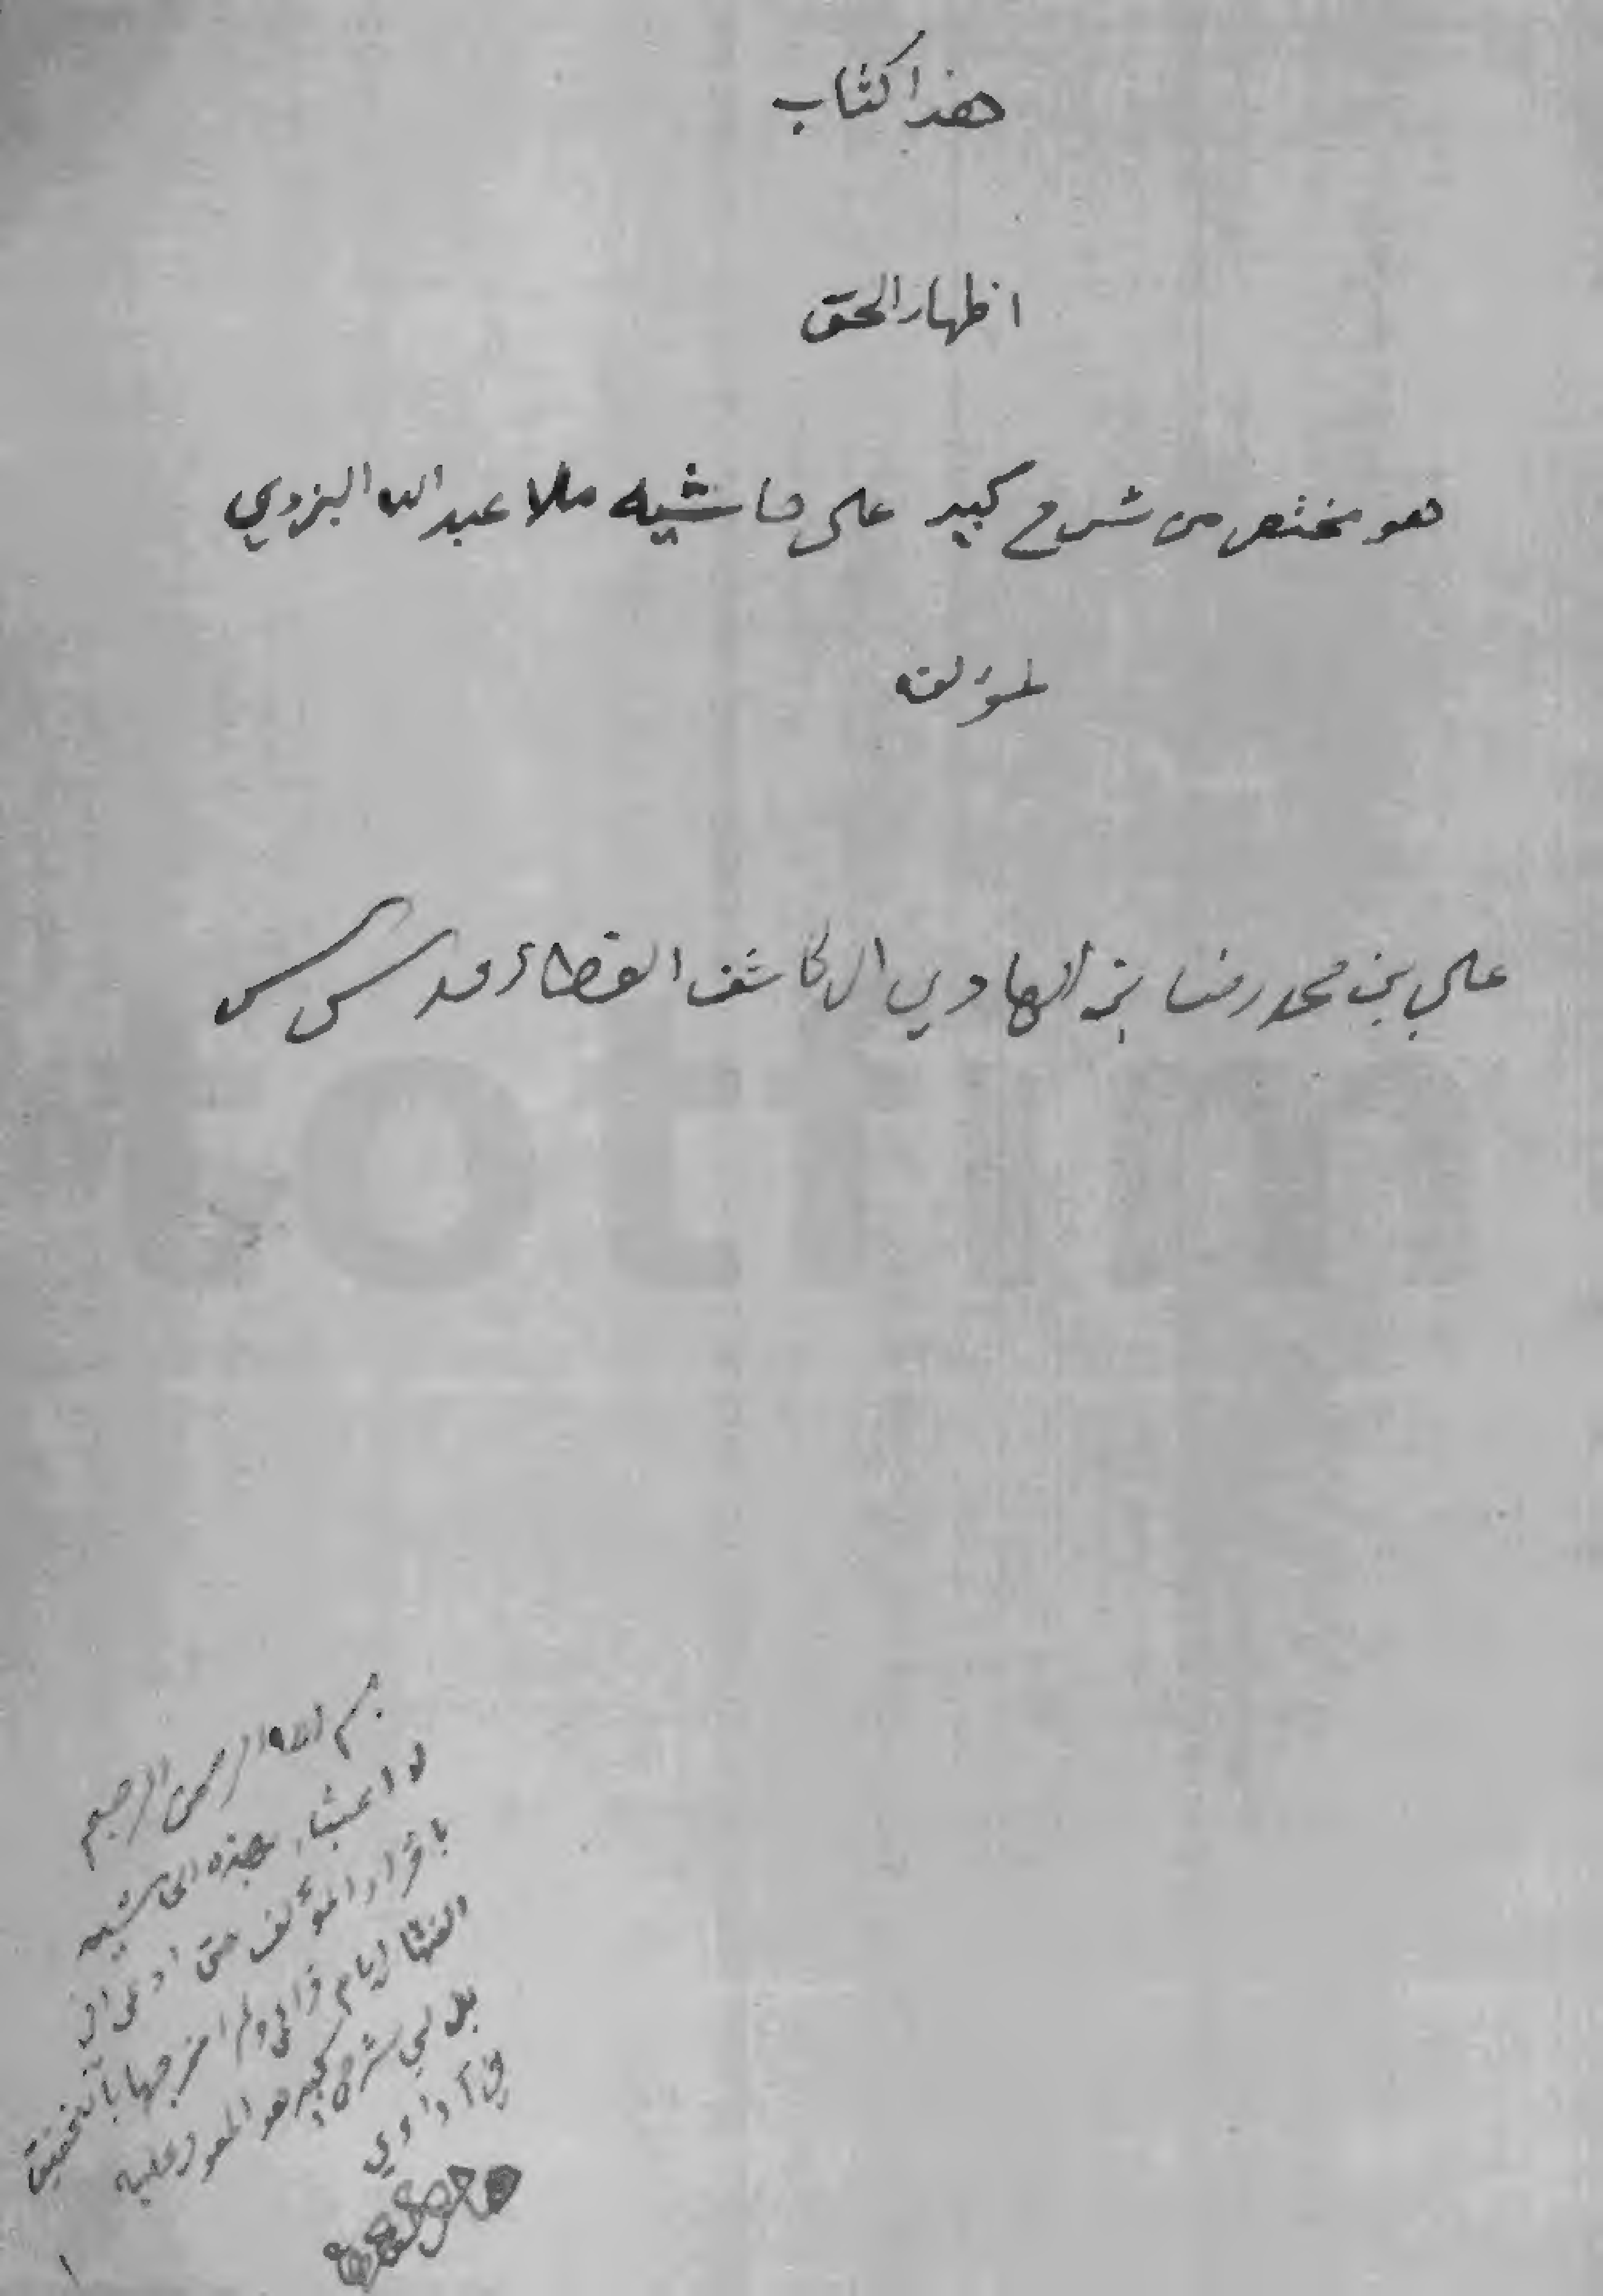 هذا كتاب
اظهار الحق
هو مختصر من شرح كبير على حاشيه ملا عبد الله اليزدي
لمؤلفه
علي بن محمد رضا بن الهادي ال كاشف الغطاء قدس سره
بسم الله الرحمن الرحيم
لا اعتبار بهذه الحاشيه
باقرار المؤلف حتى ادعى اني
الفتها ايام ولم اخرجها بالتحقيق
بل لي شرح كبير هو المعول عليه
في آرائي
١